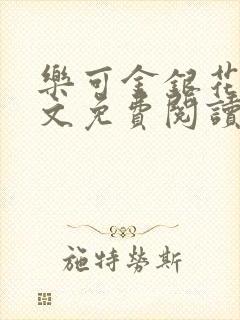 樂可金銀花
文免費閱讀
施特勞斯